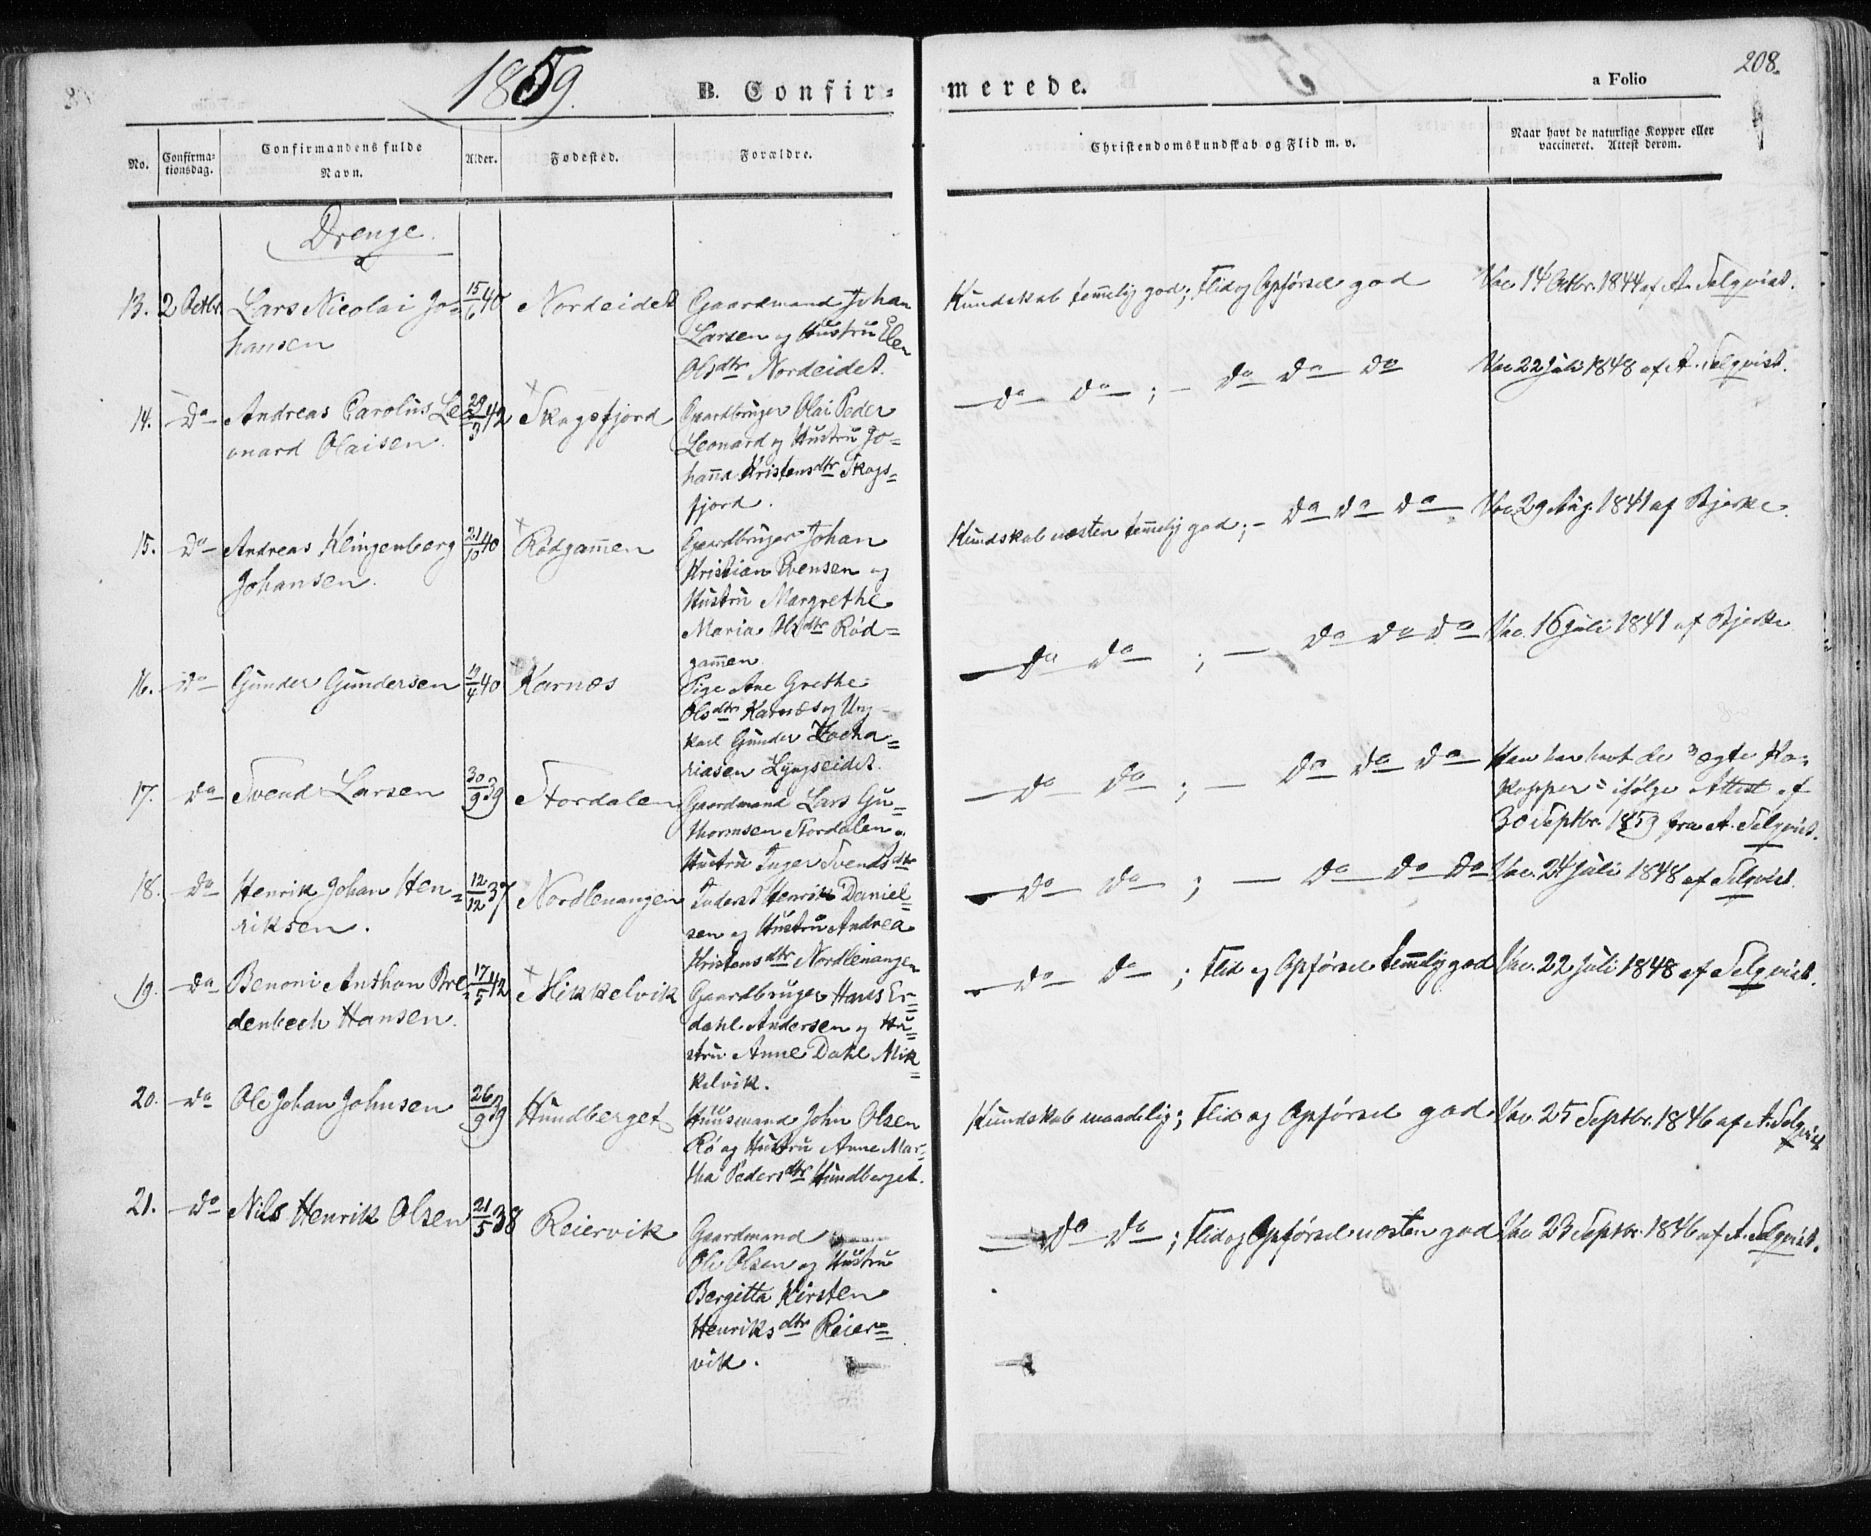 1859.
B. Confir=
merede.
a Folio
208.
No.
Confirma-
tionsdag.
Confirmandens fulde
Navn.
Alder.
Fødested.
Forældre.
Christendomskundskab og Flid m. v.
Naar havt de naturlige Kopper eller
vaccineret. Attest derom.
Drenge.
13. 2 Octbr. Lars Nicolai Jo=
hansen
15/6 40 Nordeidet
Gaardmand Johan
Larsen og Hustru Elen
Olsdtr Nordeidet.
Kundskab temmelig god; Flid og Opførsel god
Vac. 14 Octbr. 1844 af A. Selqvist.
14. Do Andreas Carolus Le=
onard Olaisen.
29/3 42 Skogsfjord
Gaardbruger Olai Peder
Leonard og Hustru Jo=
hanna Kristensdtr Skogs=
fjord.
Do Do ; - Do Do Do
Vac 22 Juli 1848 af A. Selqvist.
15. Do Andreas Klingenberg
Johansen.
21/10 40 Rødgammen
Gaardbruger Johan
Kristian Evensen og
Hustru Margrethe
Maria Olsdtr Rød=
gammen.
Kundskab næsten temmelig god; - Do Do Do
Vac 29 Aug. 1841 af Bjerke.
16. Do Gunder Gundersen
/4 40 Karnæs
Pige Ane Grethe
Olsdtr Karnæs og Ung=
karl Gunder Zacha=
riasen Lyngseidet.
Do Do ; - Do Do Do
Vac. 16 Juli 1841 af Bjerke
17. Do Svend Larsen
30/9 39 Stordalen
Gaardmand Lars Gu=
thormsen Stordalen og
Hustru Inger Svendsdtr
Do Do ; - Do Do Do
Han har havt de ægte Ko=
kopper ifølge Attest af
30 Septbr. 1859 fra A. Selqvist.
18. Do Henrik Johan Hen=
riksen.
12/12 37 Nordlenangen
Inderst Henrik Daniel=
sen og Hustru Andrea
Kristensdtr Nordlenangen
Do Do ; - Do Do Do
Vac. 24 Juli 1848 af Selqvist.
19. Do Benoni Anthon Bre=
denbech Hansen.
17/5 42 Mikkelvik
Gaardbruger Hans Er=
dahl Andersen og Hu=
stru Anne Dahl Mik=
kelvik.
Do Do ; Flid og Opførsel temmelig god
Vac. 22 Juli 1848 af Selqvist.
20. Do Ole Johan Johnsen
26/9 39 Hundberget
Huusmand John Olsen
Rø og Hustru Anne Mar=
tha Pedersdtr Hundberget.
Kundskab maadelig; Flid og Opførsel god
Vac. 25 Septbr. 1846 af A. Selqvist
21. Do Nils Henrik Olsen
21/5 38 Reiervik
Gaardmand
Ole Olsen og Hustru
Bergitta Kirsten
Henriksdtr Reier=
vik.
Do Do ; Flid og Opførsel næsten god
Vac 23 Septbr. 1846 af A. Selqvist.